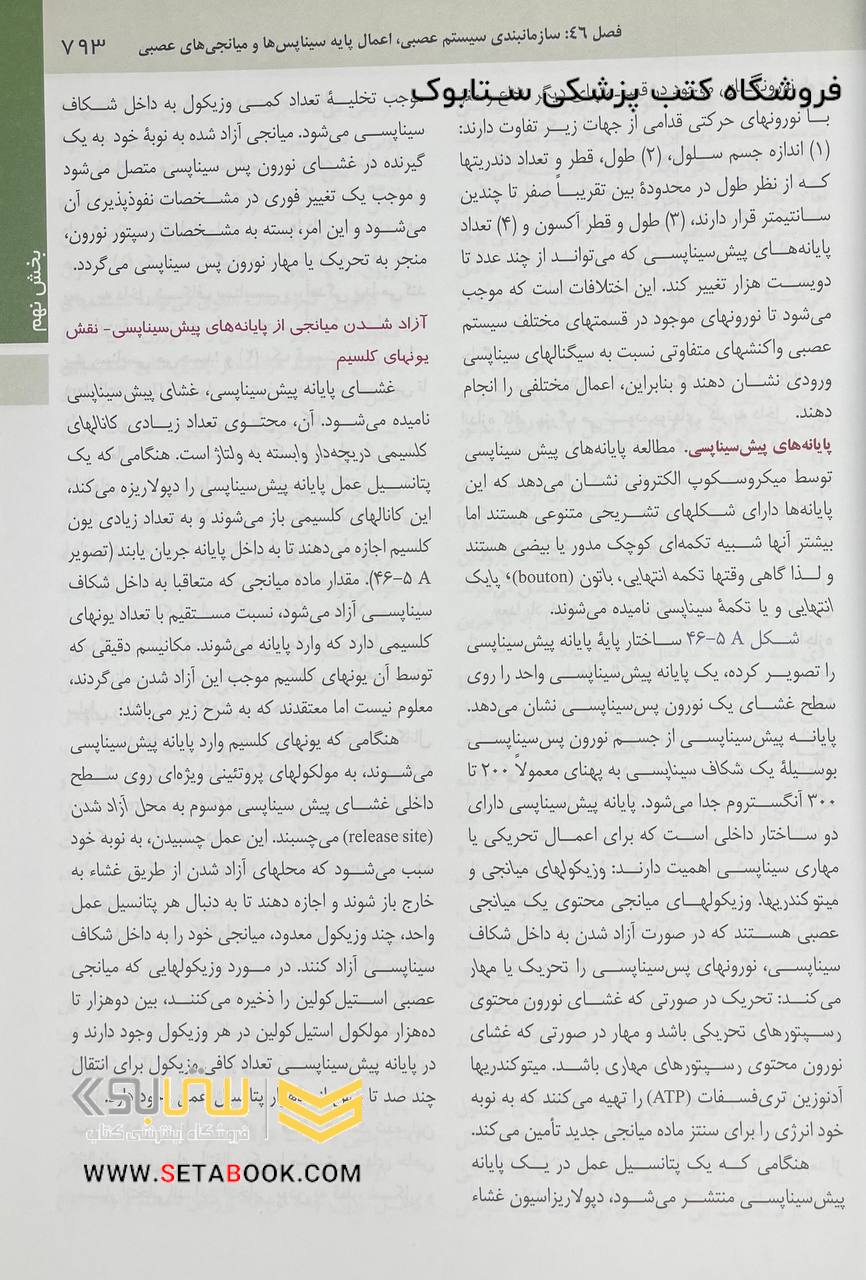 فصل ٤٦: سازمانبندی سیستم عصبی، اعمال پایه سیناپس‌ها و میانجی‌های عصبی
۷۹۳
بخش نهم
فروشگاه کتب پزشکی ستابوک
با نورونهای حرکتی قدامی از جهات زیر تفاوت دارند:
(۱) اندازه جسم سلول، (۲) طول، قطر و تعداد دندریتها
که از نظر طول در محدودهٔ بین تقریباً صفر تا چندین
سانتیمتر قرار دارند، (۳) طول و قطر آکسون و (۴) تعداد
پایانه‌های پیش‌سیناپسی که می‌تواند از چند عدد تا
دویست هزار تغییر کند. این اختلافات است که موجب
می‌شود تا نورونهای موجود در قسمتهای مختلف سیستم
عصبی واکنشهای متفاوتی نسبت به سیگنالهای سیناپسی
ورودی نشان دهند و بنابراین، اعمال مختلفی را انجام
دهند.
پایانه‌های پیش‌سیناپسی. مطالعه پایانه‌های پیش سیناپسی
توسط میکروسکوپ الکترونی نشان می‌دهد که این
پایانه‌ها دارای شکلهای تشریحی متنوعی هستند اما
بیشتر آنها شبیه تکمه‌ای کوچک مدور یا بیضی هستند
و لذا گاهی وقتها تکمه انتهایی، باتون (bouton)، پایک
انتهایی و یا تکمهٔ سیناپسی نامیده می‌شوند.
شکل ۴۶-۵ A ساختار پایهٔ پایانه پیش‌سیناپسی
را تصویر کرده، یک پایانه پیش‌سیناپسی واحد را روی
سطح غشای یک نورون پس‌سیناپسی نشان می‌دهد.
پایانه پیش‌سیناپسی از جسم نورون پس‌سیناپسی
بوسیلهٔ یک شکاف سیناپسی به پهنای معمولاً ۲۰۰ تا
۳۰۰ آنگستروم جدا می‌شود. پایانه پیش‌سیناپسی دارای
دو ساختار داخلی است که برای اعمال تحریکی یا
مهاری سیناپسی اهمیت دارند: وزیکولهای میانجی و
میتوکندریها. وزیکولهای میانجی محتوی یک میانجی
عصبی هستند که در صورت آزاد شدن به داخل شکاف
سیناپسی، نورونهای پس‌سیناپسی را تحریک یا مهار
می‌کند: تحریک در صورتی که غشای نورون محتوی
رسپتورهای تحریکی باشد و مهار در صورتی که غشای
نورون محتوی رسپتورهای مهاری باشد. میتوکندریها
آدنوزین تری‌فسفات (ATP) را تهیه می‌کنند که به نوبه
خود انرژی را برای سنتز ماده میانجی جدید تأمین می‌کند.
هنگامی که یک پتانسیل عمل در یک پایانه
پیش‌سیناپسی منتشر می‌شود، دپولاریزاسیون غشاء
موجب تخلیهٔ تعداد کمی وزیکول به داخل شکاف
سیناپسی می‌شود. میانجی آزاد شده به نوبهٔ خود به یک
گیرنده در غشای نورون پس سیناپسی متصل می‌شود
و موجب یک تغییر فوری در مشخصات نفوذپذیری آن
می‌شود و این امر، بسته به مشخصات رسپتور نورون،
منجر به تحریک یا مهار نورون پس سیناپسی می‌گردد.
آزاد شدن میانجی از پایانه‌های پیش‌سیناپسی- نقش
یونهای کلسیم
غشای پایانه پیش‌سیناپسی، غشای پیش‌سیناپسی
نامیده می‌شود. آن، محتوی تعداد زیادی کانالهای
کلسیمی دریچه‌دار وابسته به ولتاژ است. هنگامی که یک
پتانسیل عمل پایانه پیش‌سیناپسی را دپولاریزه می‌کند،
این کانالهای کلسیمی باز می‌شوند و به تعداد زیادی یون
کلسیم اجازه می‌دهند تا به داخل پایانه جریان یابند (تصویر
۴۶-۵ A). مقدار ماده میانجی که متعاقبا به داخل شکاف
سیناپسی آزاد می‌شود، نسبت مستقیم با تعداد یونهای
کلسیمی دارد که وارد پایانه می‌شوند. مکانیسم دقیقی که
توسط آن یونهای کلسیم موجب این آزاد شدن می‌گردند،
معلوم نیست اما معتقدند که به شرح زیر می‌باشد:
هنگامی که یونهای کلسیم وارد پایانه پیش‌سیناپسی
می‌شوند، به مولکولهای پروتئینی ویژه‌ای روی سطح
داخلی غشای پیش سیناپسی موسوم به محل آزاد شدن
(release site) می‌چسبند. این عمل چسبیدن، به نوبه خود
سبب می‌شود که محلهای آزاد شدن از طریق غشاء به
خارج باز شوند و اجازه دهند تا به دنبال هر پتانسیل عمل
واحد، چند وزیکول معدود، میانجی خود را به داخل شکاف
سیناپسی آزاد کنند. در مورد وزیکولهایی که میانجی
عصبی استیل‌کولین را ذخیره می‌کنند، بین دوهزار تا
ده‌هزار مولکول استیل‌کولین در هر وزیکول وجود دارند و
در پایانه پیش‌سیناپسی تعداد کافی وزیکول برای انتقال
چند صد تا پتانسیل عمل
ستابوک
فروشگاه اینترنتی کتاب
WWW.SETABOOK.COM